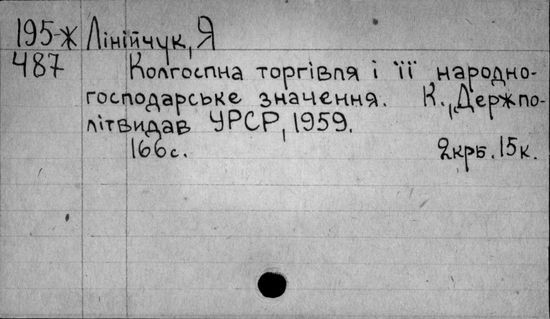 195-Ж Лінійчук, Я
487 Колгоспна торгівля і її народно-
господарське значення. К., Держпо-
літвидав УРСР, 1959.
166с. 2крб. 15к.